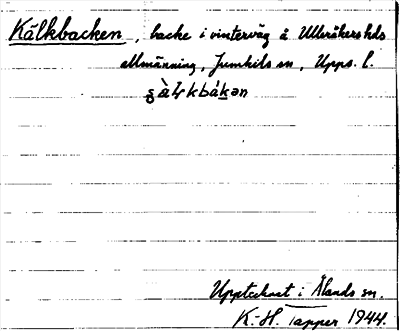 Kälkbacken, backe i vinterväg å Ulleråkers hds
allmänning, Jumkils sn, Upps. l.
Upptecknat i Ålands sn.
K.-H. Tapper 1944.